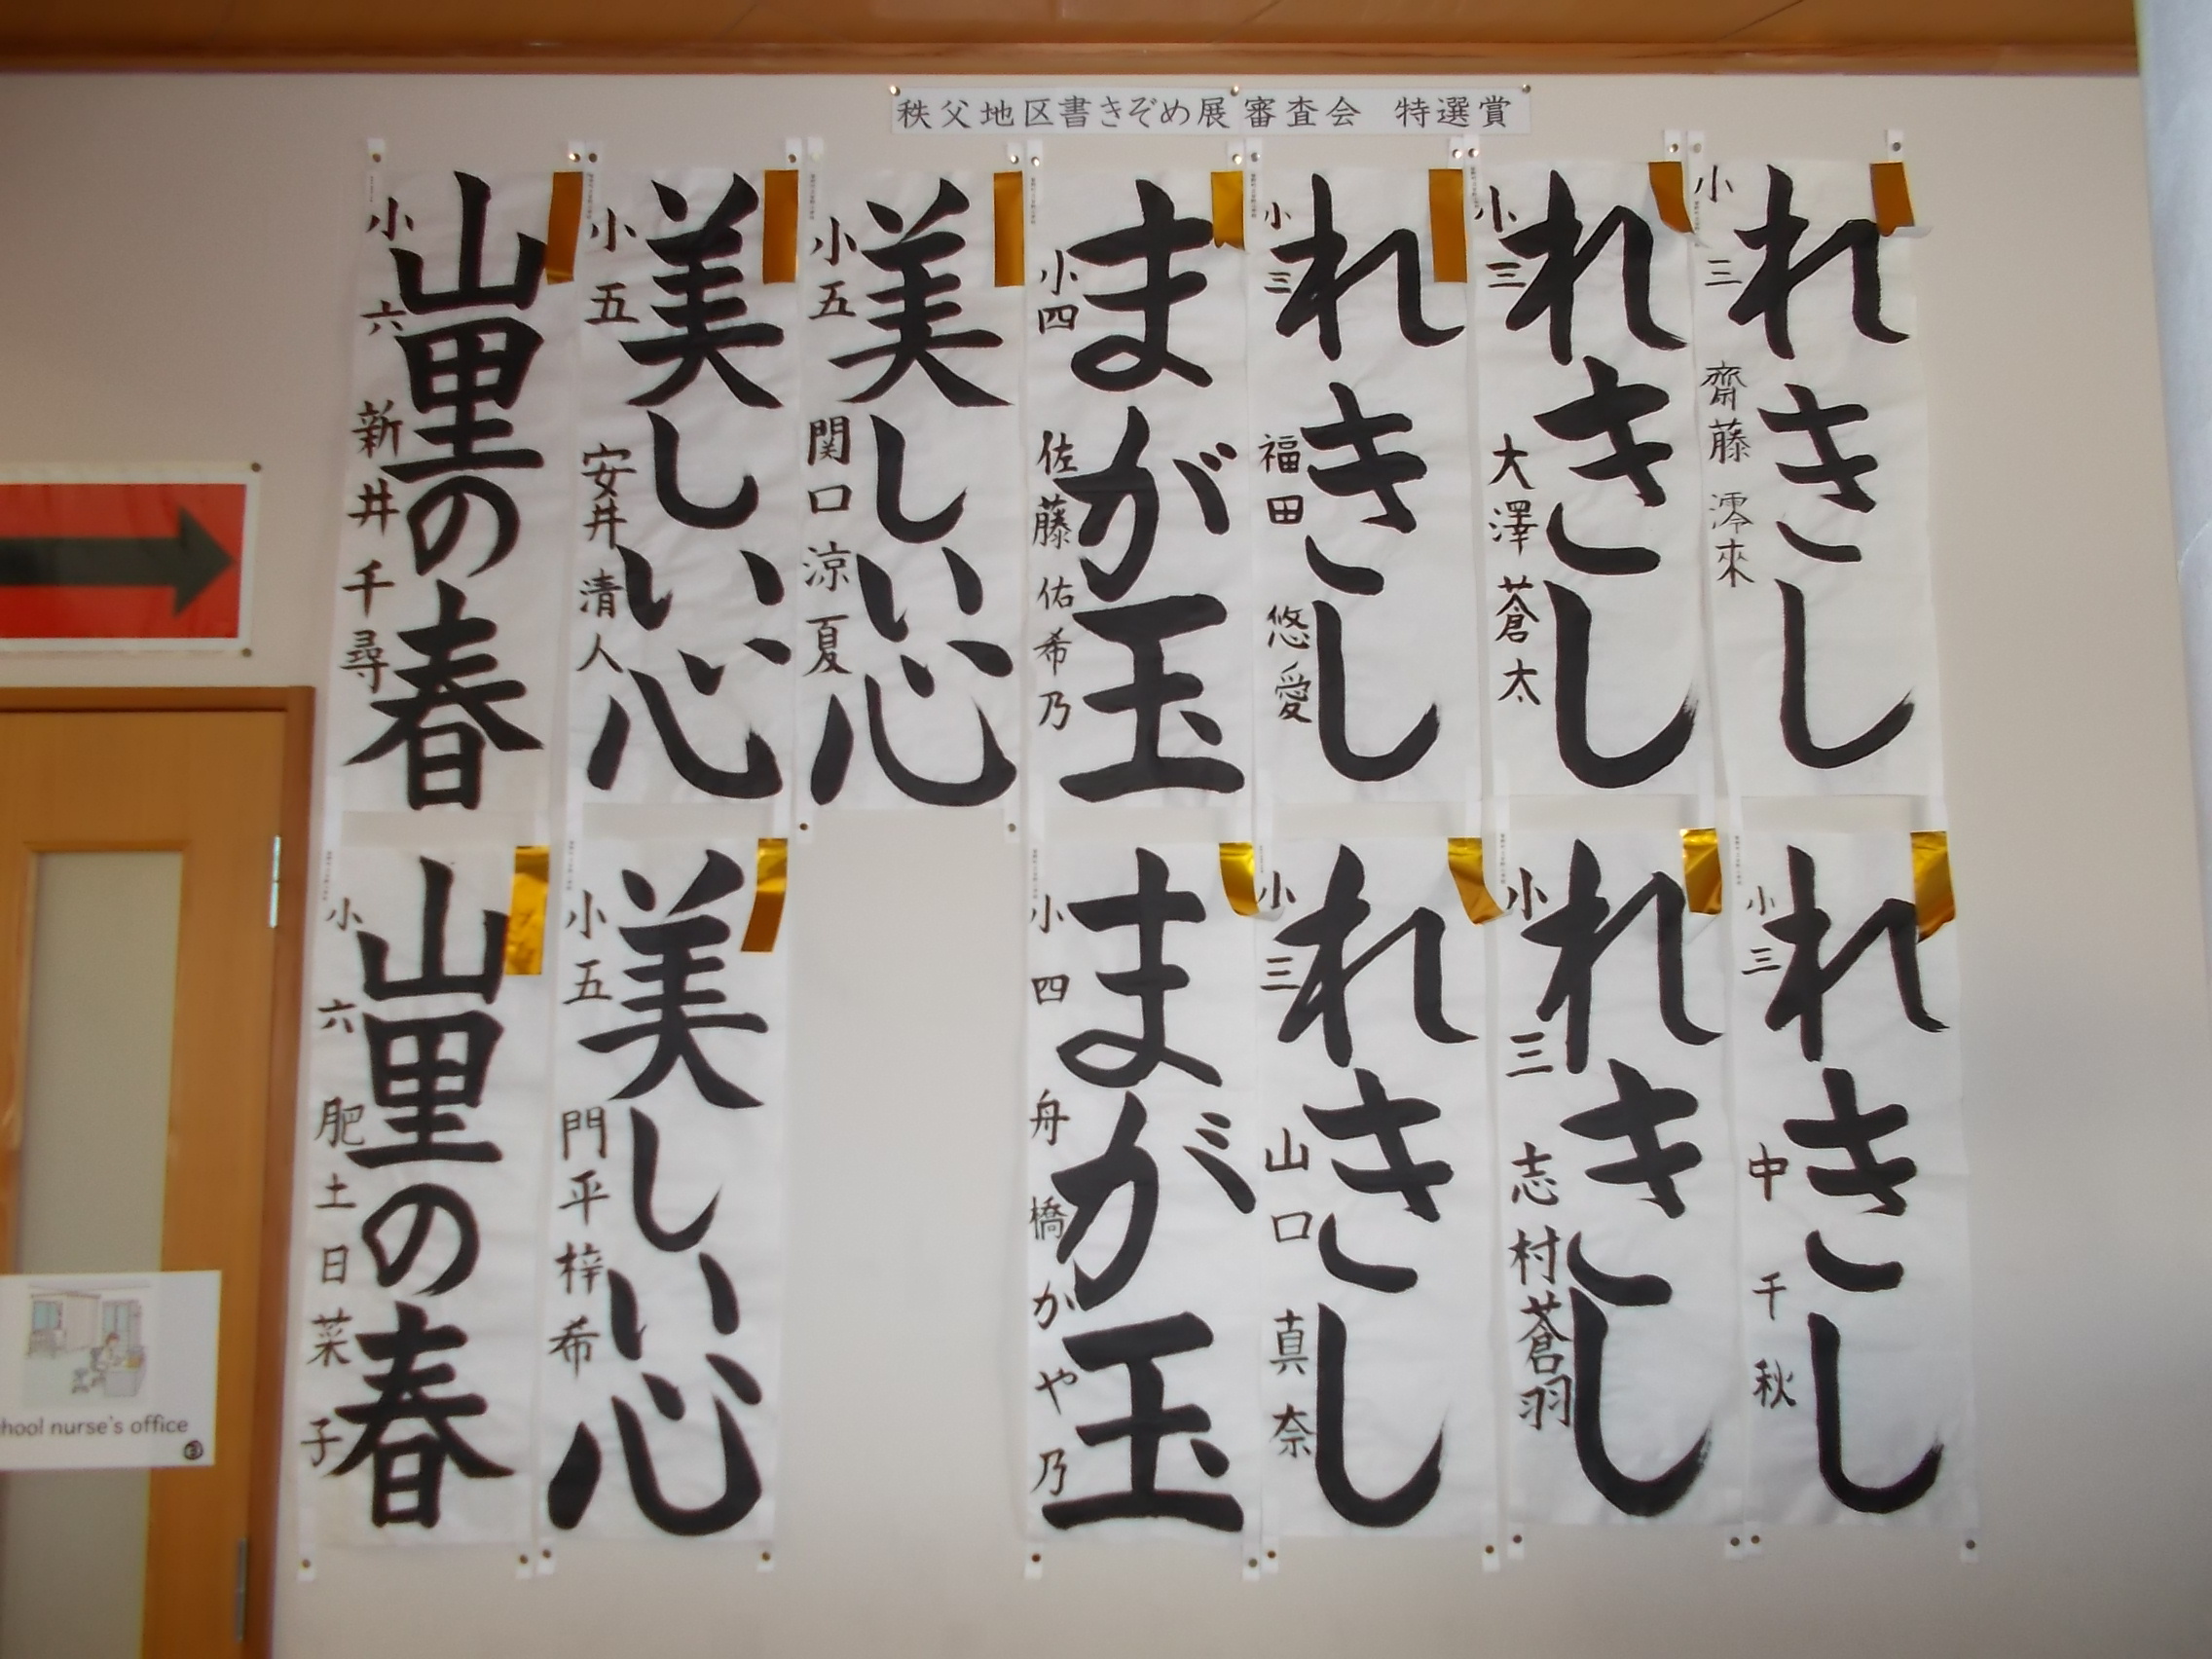 秩父地区書きぞめ展審査会 特選賞
れきし
小三 齋藤 澪來
れきし
小三 大澤 蒼太
れきし
小三 福田 悠愛
まが玉
小四 佐藤 佑希乃
美しい心
小五 関口 涼夏
美しい心
小五 安井 清人
山里の春
小六 新井 千尋
れきし
小三 中 千秋
れきし
小三 志村 蒼羽
れきし
小三 山口 真奈
まが玉
小四 舟橋 かや乃
美しい心
小五 門平 梓希
山里の春
小六 肥土 日菜子
hool nurse's office